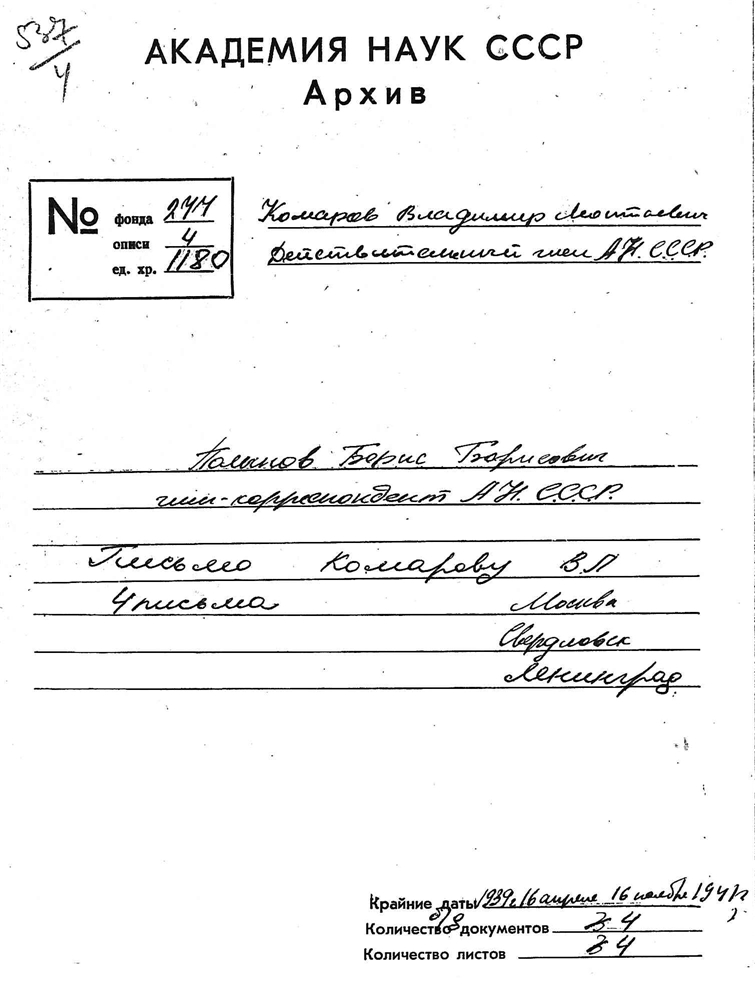 537/4
АКАДЕМИЯ НАУК СССР
Архив
№ фонда 277
описи 4
ед. хр. 1180
Комаров Владимир Леонтьевич
Действительный член АН. СССР.
Полынов Борис Борисович
член-корреспондент АН. СССР.
Письмо Комарову В Л
4 письма Москва
Свердловск
Ленинград
Крайние даты 1939г. 16 апреля 16 ноября
б/д
Количество документов 3 4
Количество листов 3 4